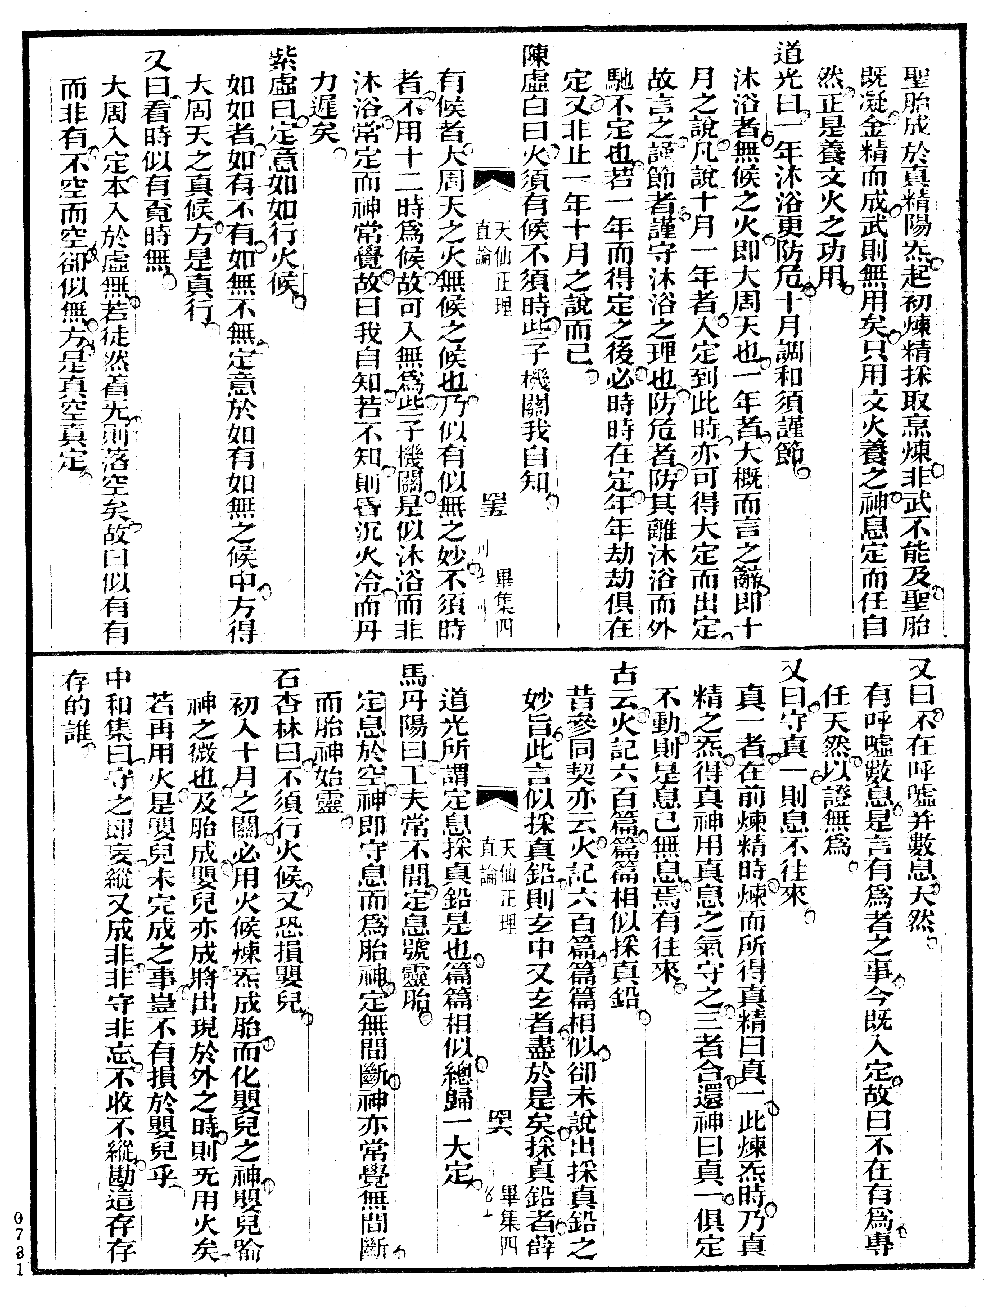 聖胎成於真精陽炁起初煉精採取烹煉非武不能及聖胎
既凝金精而成武則無用矣只用文火養之神息定而任自
然正是養文火之功用
道光曰一年沐浴更防危十月調和須謹節
沐浴者無候之火即大周天也一年者大概而言之辭即十
月之說凡說十月一年者人定到此時亦可得大定而出定
故言之謹節者謹守沐浴之理也防危者防其離沐浴而外
馳不定也若一年而得定之後必時時在定年年劫劫俱在
定又非止一年十月之說而已
陳虛白曰火須有候不須時些子機關我自知
天仙正理
直論
畢集四
有候者大周天之火無候之候也乃似有似無之妙不須時
者不用十二時為候故可入無為些子機關是似沐浴而非
沐浴常定而神常覺故曰我自知若不知則昏沉火冷而丹
力遲矣
紫虛曰定意如如行火候
如如者如有不有如無不無定意於如有如無之候中方得
大周天之真候方是真行
又曰看時似有覔時無
大周入定本入於虛無若徒然着无則落空矣故曰似有有
而非有不空而空卻似無方是真空真定
又曰不在呼噓并數息天然
有呼噓數息是言有為者之事今既入定故曰不在有為專
任天然以證無為
又曰守真一則息不往來
真一者在前煉精時煉而所得真精曰真一此煉炁時乃真
精之炁得真神用真息之氣守之三者合還神曰真一俱定
不動則是息已無息焉有往來
古云火記六百篇篇篇相似採真鉛
昔參同契亦云火記六百篇篇篇相似卻未說出採真鉛之
妙旨此言似採真鉛則玄中又玄者盡於是矣採真鉛者薛
天仙正理
直論
畢集四
道光所謂定息採真鉛是也篇篇相似總歸一大定
馬丹陽曰工夫常不間定息號靈胎
定息於空神即守息而為胎神定無間斷神亦常覺無間斷
而胎神始靈
石杏林曰不須行火候又恐損嬰兒
初入十月之關必用火候煉炁成胎而化嬰兒之神嬰兒喻
神之微也及胎成嬰兒亦成將出現於外之時則无用火矣
若再用火是嬰兒未完成之事豈不有損於嬰兒乎
中和集曰守之即妄縱又成非非守非忘不收不縱勘這存存
存的誰
0731